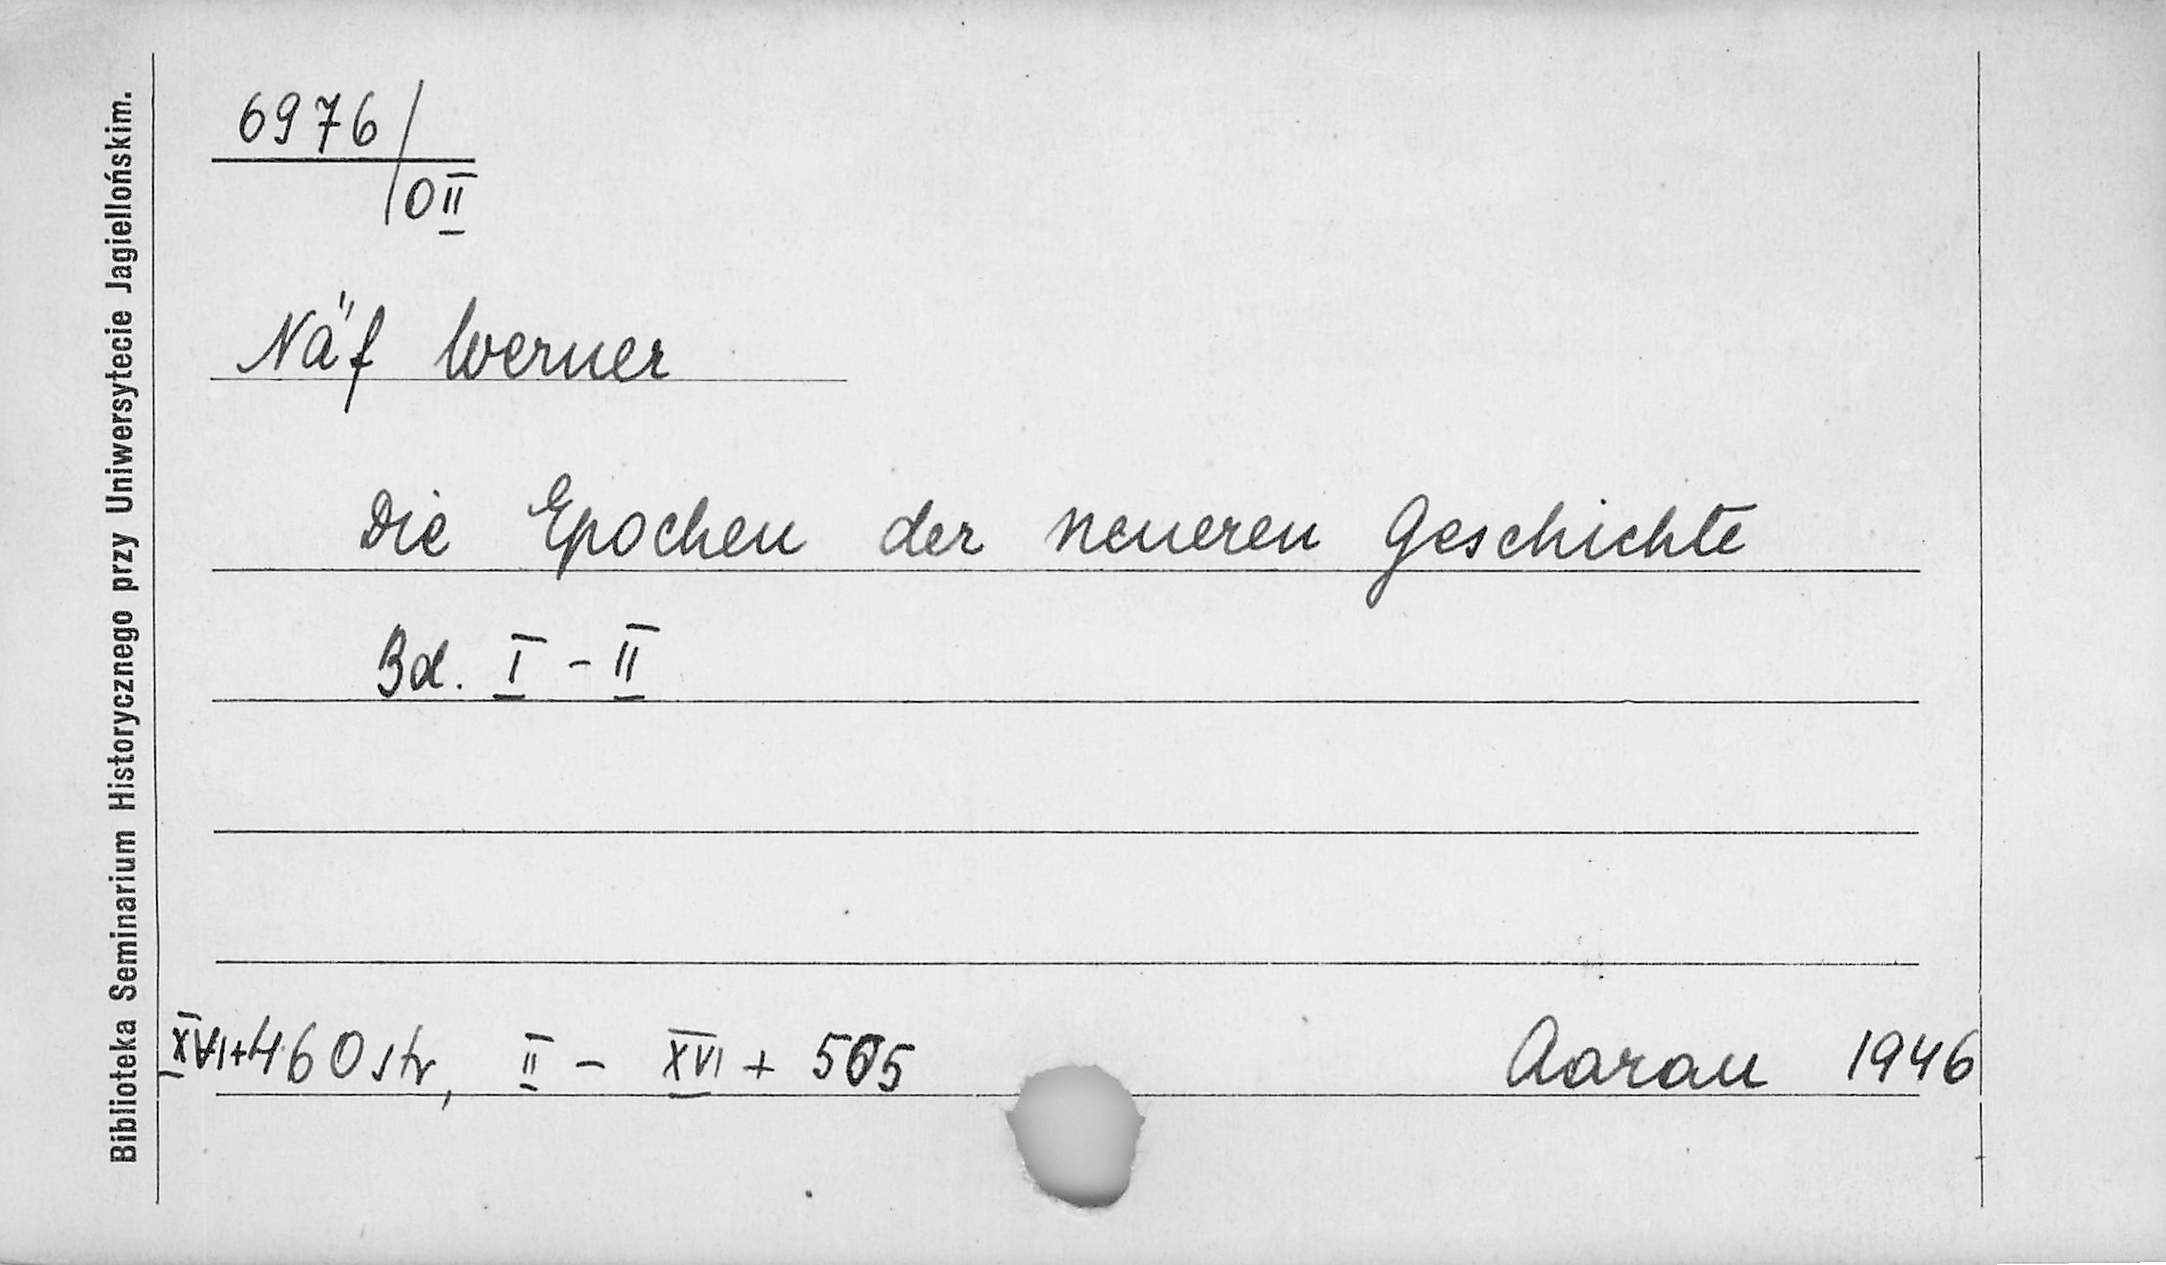 6976/
OII
Näf Werner
Die Epochen der neueren Geschichte
Bd. I - II
XVI+460 str, II - XVI + 505 Aarau 1946
Biblioteka Seminarium Historycznego przy Uniwersytecie Jagiellońskim.